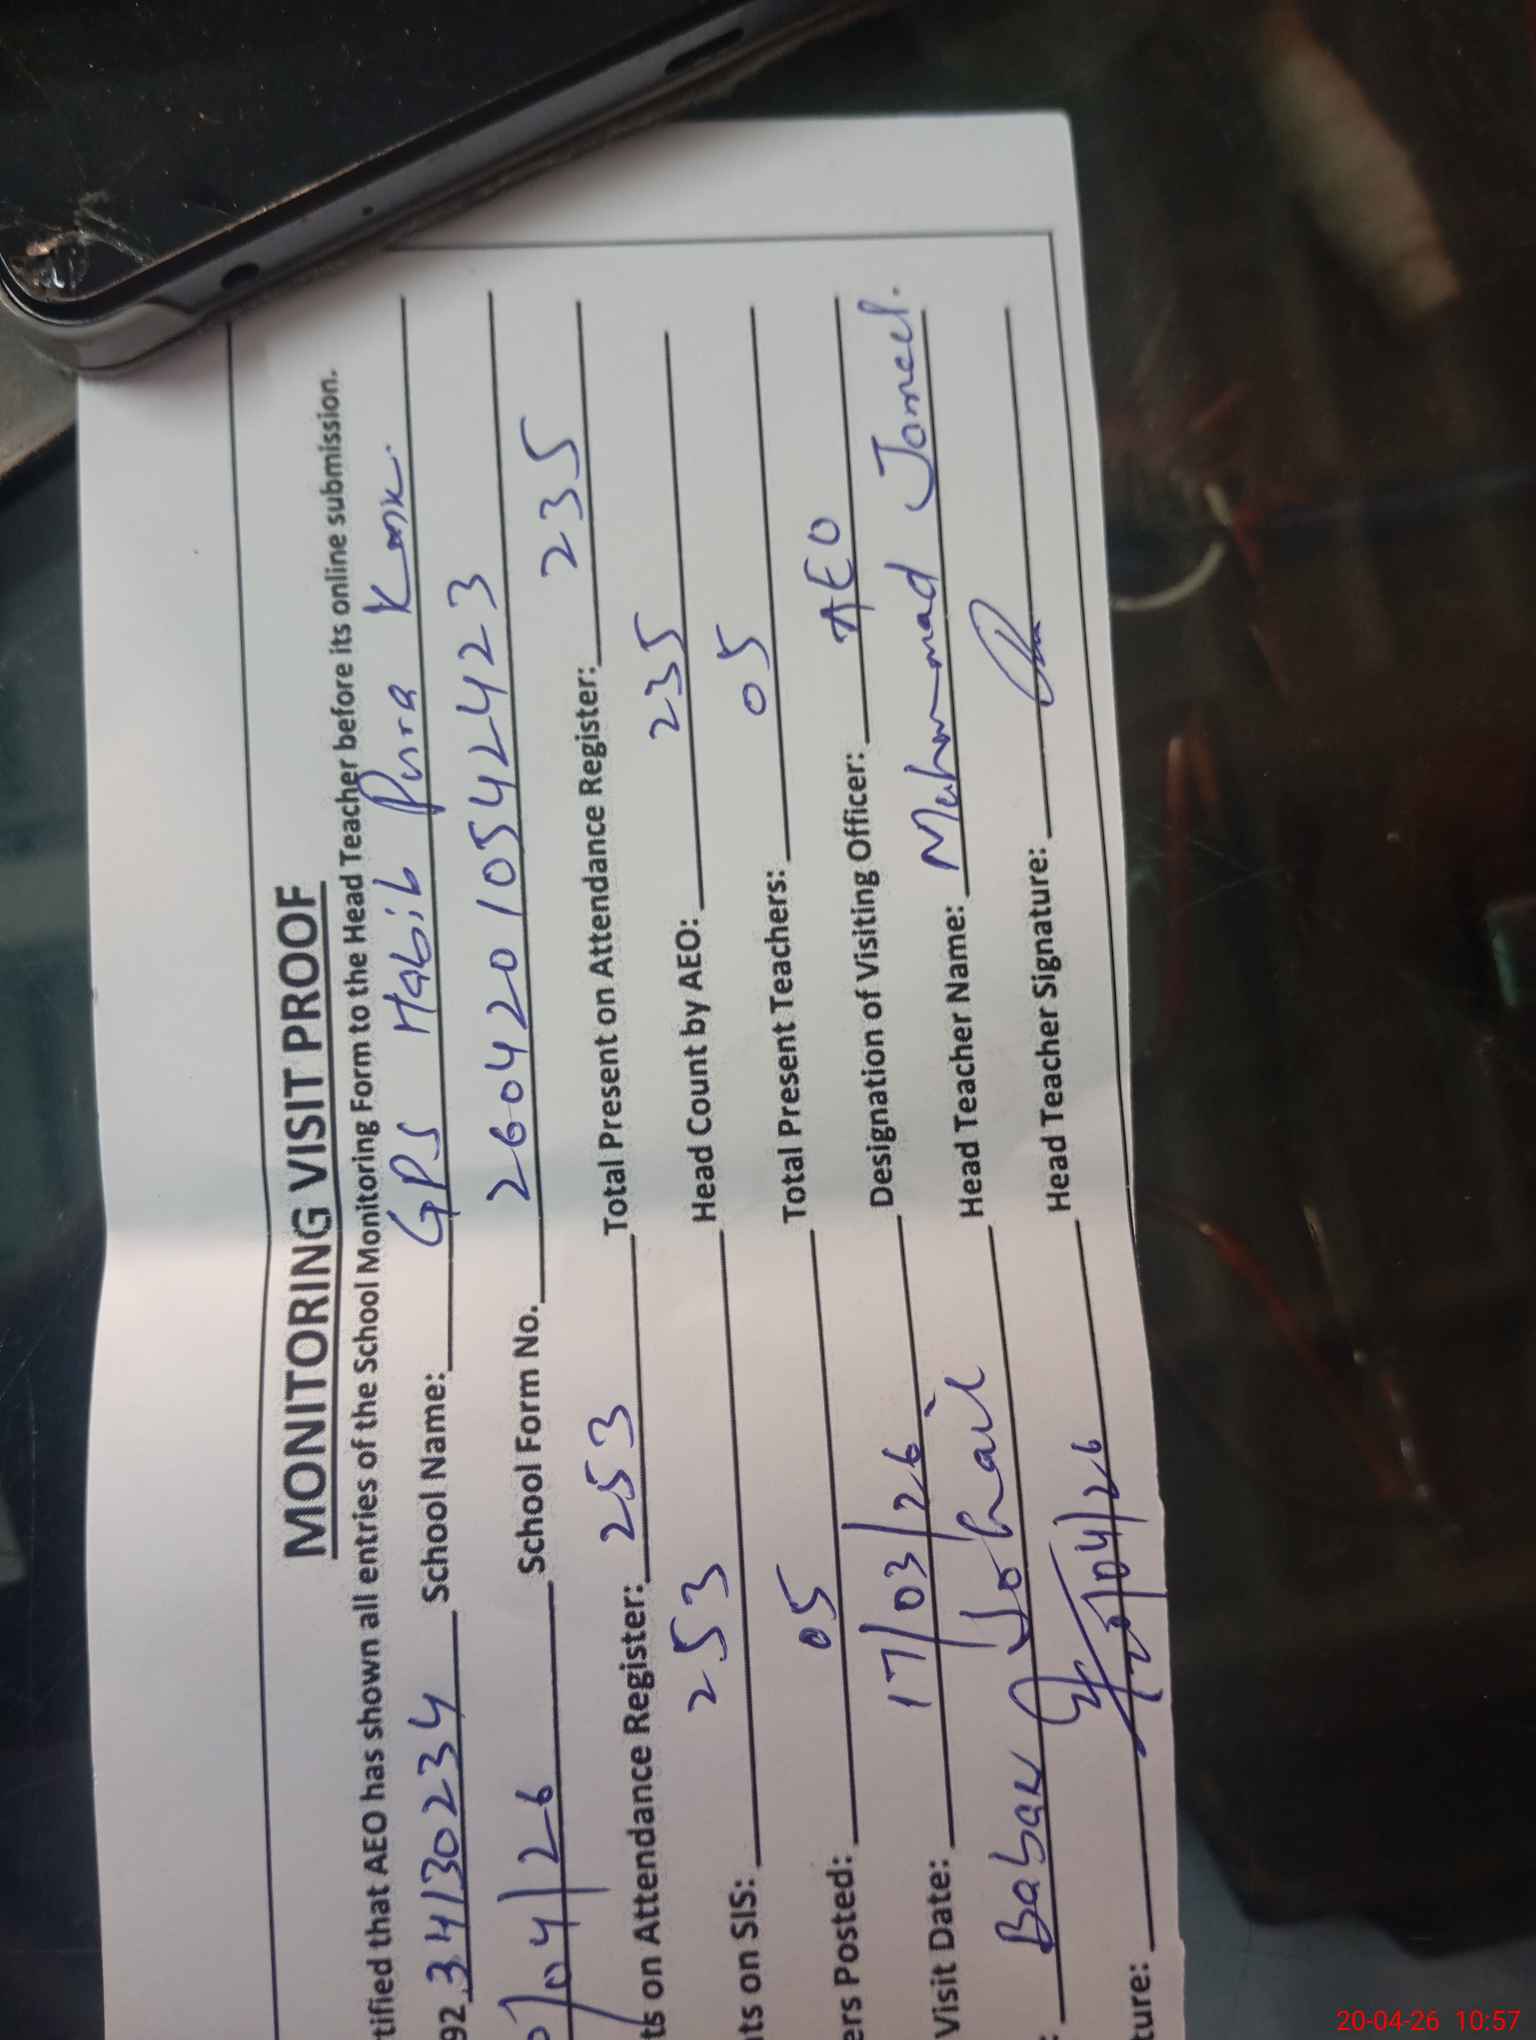 MONITORING VISIT PROOF
tified that AEO has shown all entries of the School Monitoring Form to the Head Teacher before its online submission.
92 34130234 School Name: GPS Habib Pura
/04/26 School Form No. 26042010542423
ts on Attendance Register: 253 Total Present on Attendance Register: 235
ts on SIS: 253 Head Count by AEO: 235
ers Posted: 05 Total Present Teachers: 05
Visit Date: 17/03/26 Designation of Visiting Officer: AEO
: Babar Sohail Head Teacher Name: Muhammad Jameel.
ture: 20/04/26 Head Teacher Signature:
20-04-26 10:57